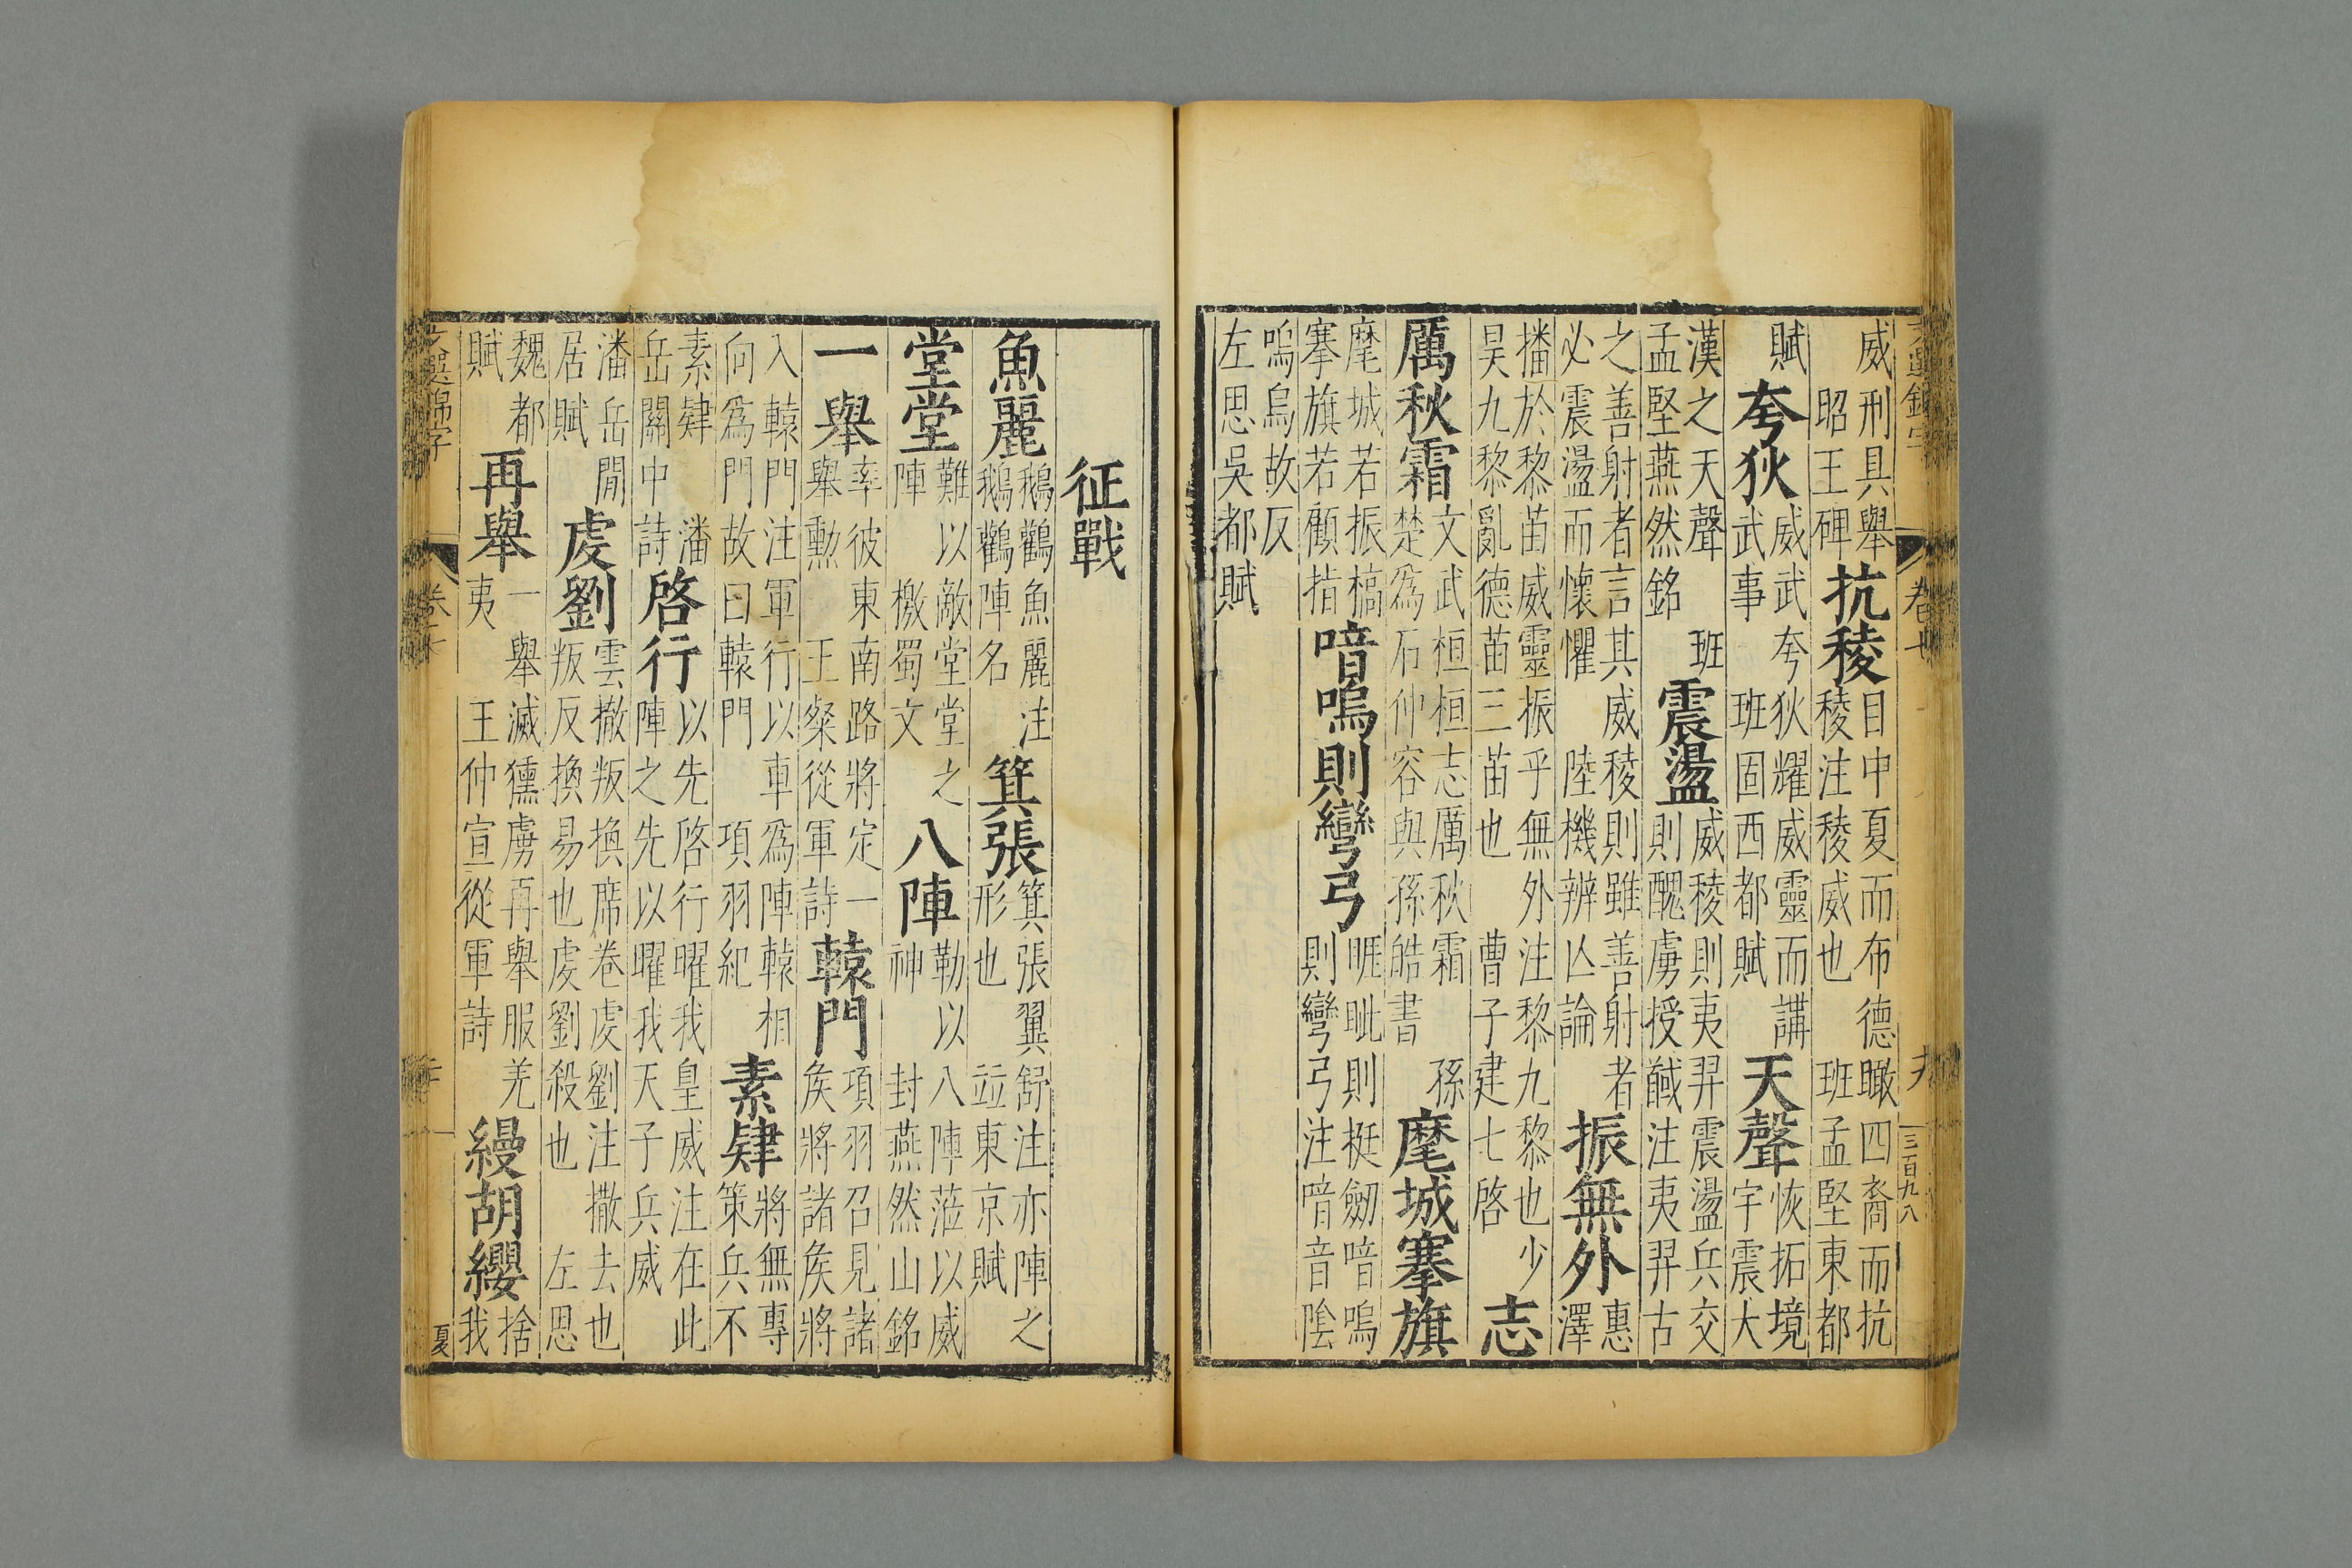 文選錦字 卷十 三百九八
威刑具舉昭王碑抗稜目中夏而布德瞰四裔而抗稜注稜威也 班孟堅東都
賦夸狄威武夸狄耀威靈而講武事 班固西都賦天聲恢拓境宇震大
漢之天聲 班孟堅燕然銘震盪威稜則夷羿震盪兵交則醜虜授馘注夷羿古
之善射者言其威稜則雖善射者必震盪而懷懼 陸機辨亾論振無外惠澤
播於黎苗威靈振乎無外注黎九黎也少昊九黎亂德苗三苗也 曹子建七啓志
厲秋霜文武桓桓志厲秋霜 孫楚爲石仲容與孫皓書麾城搴旗
麾城若振槁搴旗若顧指喑嗚則彎弓睚眦則挺劒喑嗚則彎弓注喑音隂
嗚烏故反左思吳都賦
征戰
魚麗鵝鸛魚麗注鵝鸛陣名箕張箕張翼舒注亦陣之形也 竝東京賦
堂堂難以敵堂堂之陣 檄蜀文八陣勒以八陣蒞以威神 封燕然山銘
一舉率彼東南路將定一舉勳 王粲從軍詩轅門項羽召見諸矦將諸矦將
入轅門注軍行以車爲陣轅相向爲門故曰轅門 項羽紀素肄將無專策兵不
素肄 潘岳關中詩啓行以先啓行曜我皇威注在此陣之先以曜我天子兵威
潘岳閒居賦虔劉雲撤叛換席卷虔劉注撒去也叛反換易也虔劉殺也 左思
魏都賦再舉一舉滅獯虜再舉服羌夷 王仲宣從軍詩縵胡纓捨我
文選錦字 卷十 夏